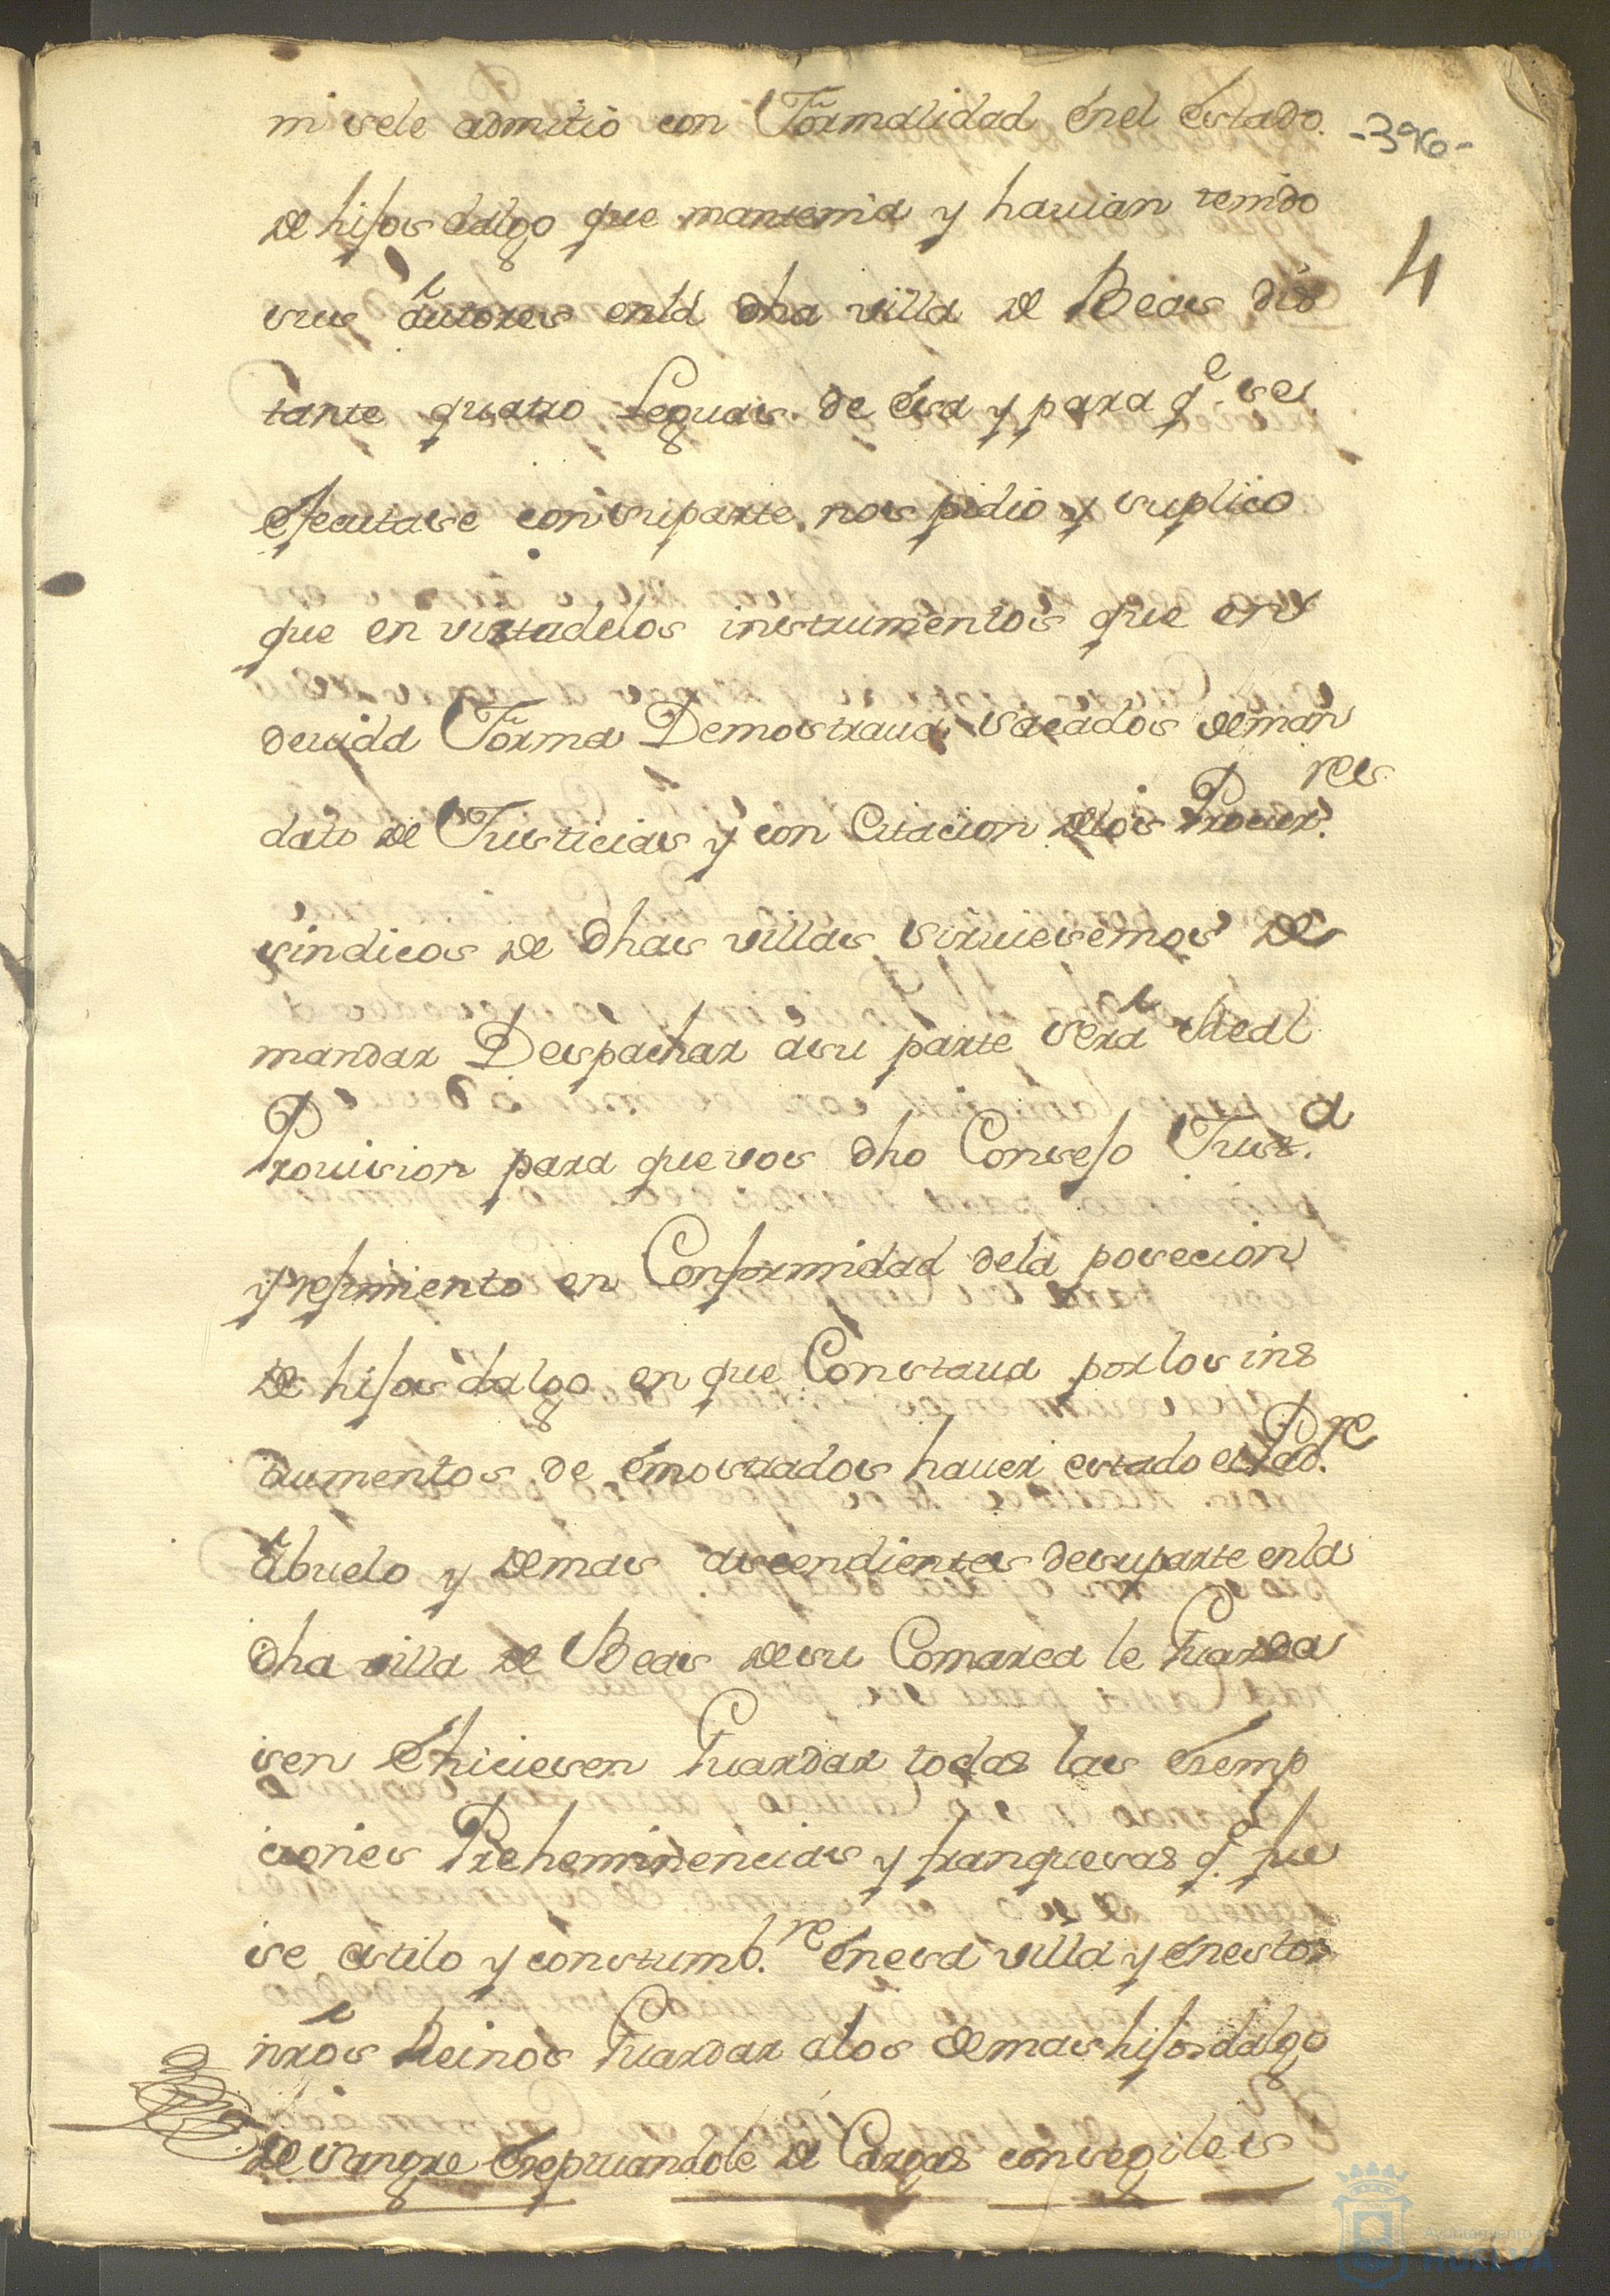 ni sele admitió con Formalidad én el éstado. -396-
de hijos dalgo que mantenia y hauian tenido
4
sus autores en la dha villa de Beas dis
tante quatro Leguas de ésa y para q.e se
éjecutase con su parte nos pidio y suplico
que en vista de los instrumentos que en
deuida Forma Demostraua sacados de man
dato de Justicias y con Citacion de los Procur.res
sindicos de dhas villas siruiesemos de
mandar Despachar á su parte será Real
Prouision para que vos dho Consejo Just.a
y rejimiento en Conformidad de la posecion
de hijos dalgo en que Constaua por los ins
trumentos de émostrados hauer estado el Pad.re
ábuelo y demas ascendientes de su parte en la
dha villa de Beas de su Comarca le Guarda
sen é hiciesen Guardar todas las éxemp
ciones Preheminencias y franquesas q.e fue
se éstilo y constumb.re én esa villa y én estos
nros Reinos Guardar a los demas hijosdalgo
de sangre éxepruandole de Cargas consegiles
Ayuntamiento de
HUELVA